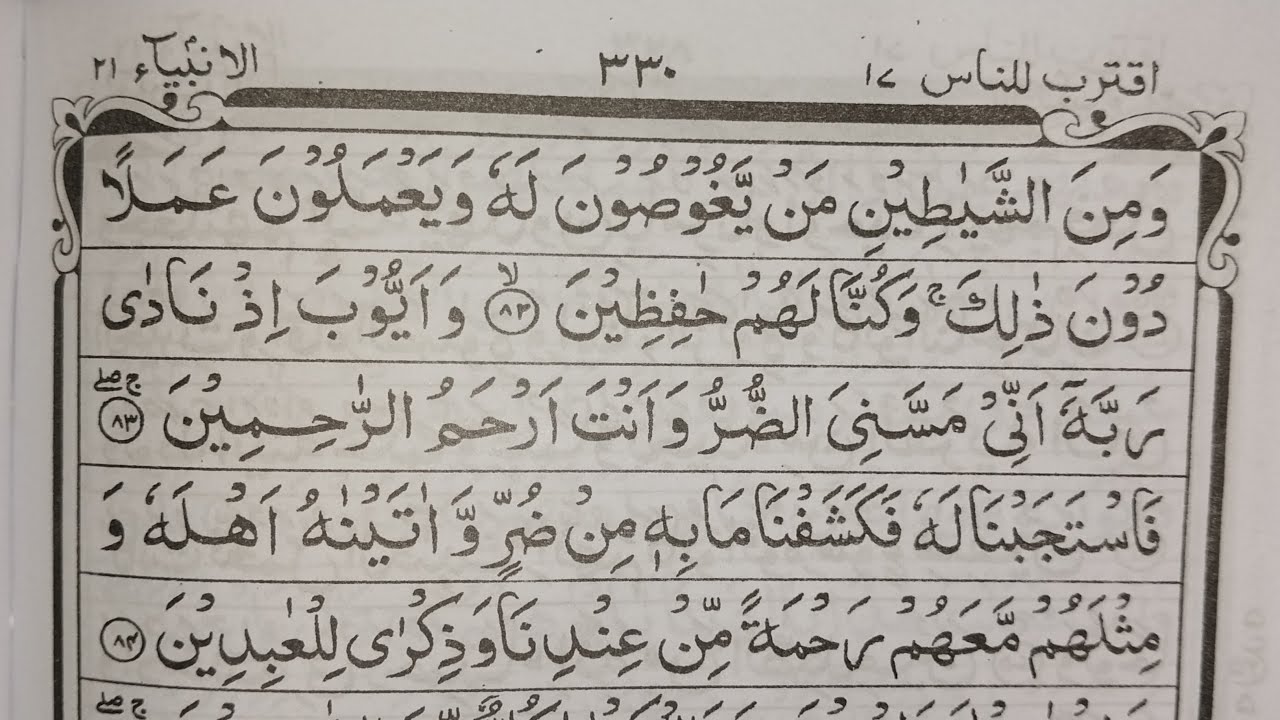 اقترب للناس ١٧ ٣٣٠ الانبیآء ٢١
وَمِنَ الشَّیٰطِیْنِ مَنْ یَّغُوْصُوْنَ لَهٗ وَیَعْمَلُوْنَ عَمَلًا
دُوْنَ ذٰلِكَ ۚ وَكُنَّا لَهُمْ حٰفِظِیْنَ ۙ﴿٨٢﴾ وَاَیُّوْبَ اِذْ نَادٰی
رَبَّهٗۤ اَنِّیْ مَسَّنِیَ الضُّرُّ وَاَنْتَ اَرْحَمُ الرّٰحِمِیْنَ ﴿٨٣﴾ ۚۖ
فَاسْتَجَبْنَا لَهٗ فَكَشَفْنَا مَا بِهٖ مِنْ ضُرٍّ وَّاٰتَیْنٰهُ اَهْلَهٗ وَ
مِثْلَهُمْ مَّعَهُمْ رَحْمَةً مِّنْ عِنْدِنَا وَذِكْرٰی لِلْعٰبِدِیْنَ ﴿٨٤﴾